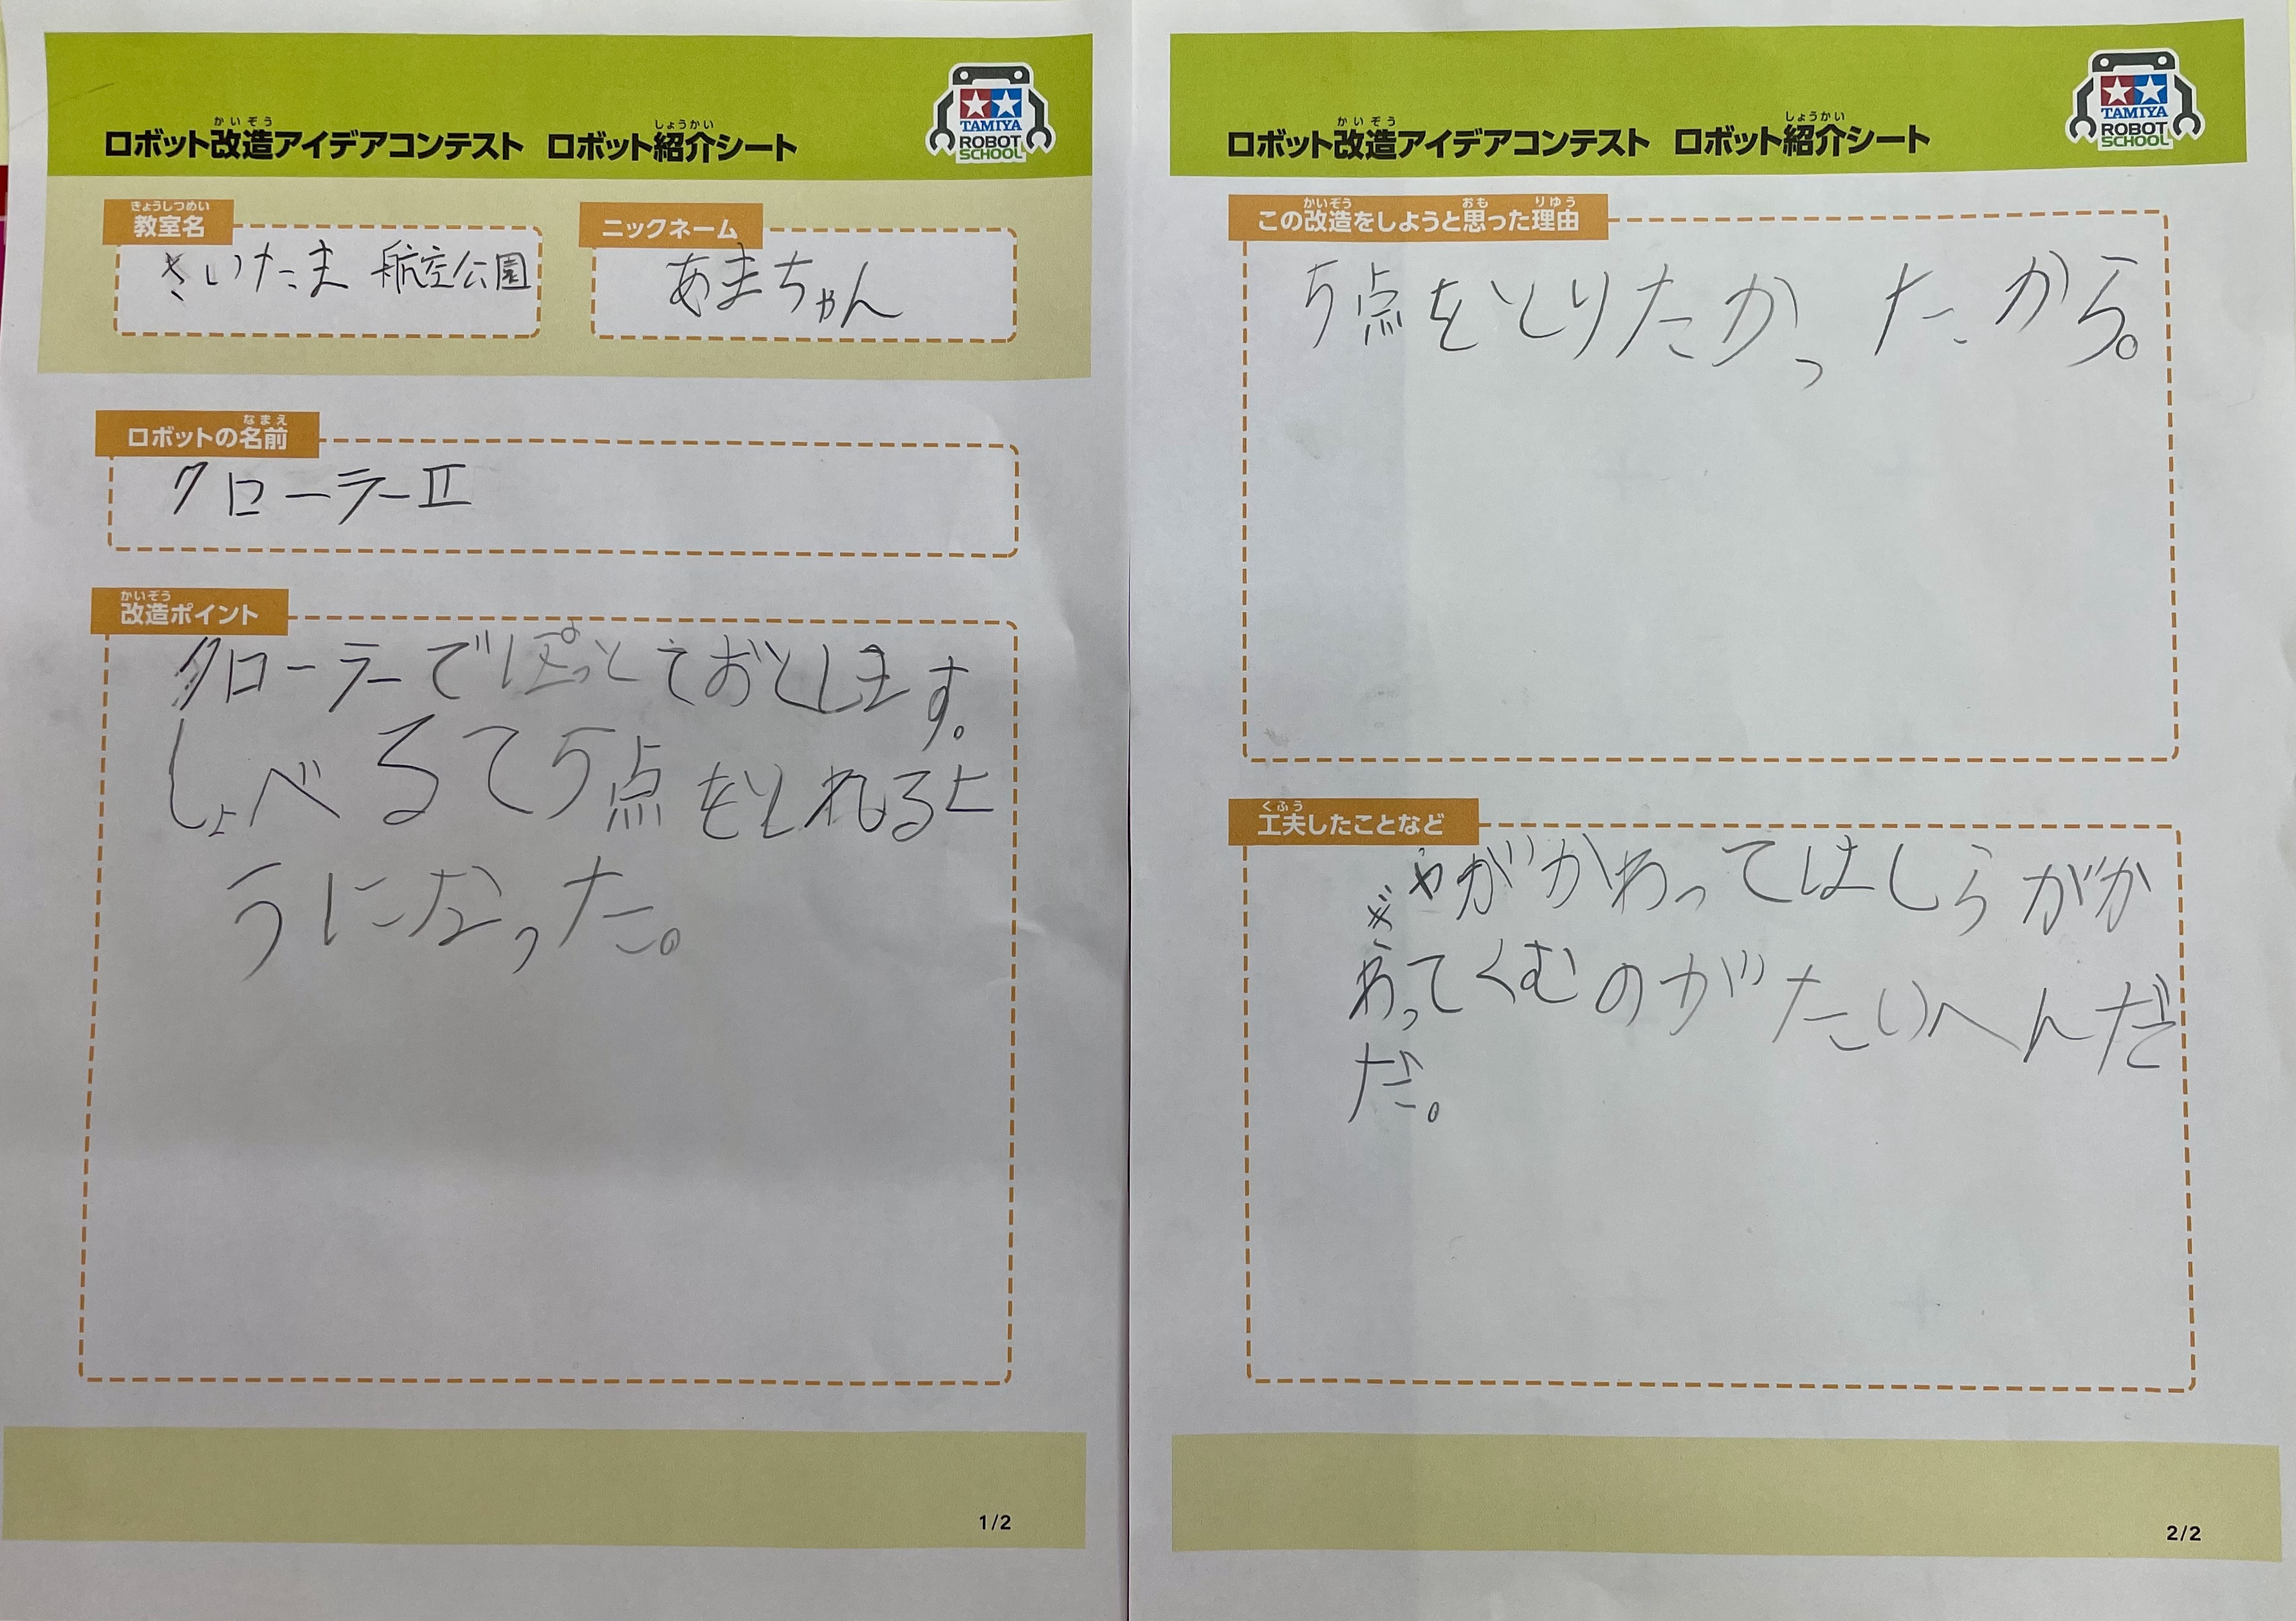 かいぞう
しょうかい
ロボット改造アイデアコンテスト ロボット紹介シート
TAMIYA
ROBOT
SCHOOL
きょうしつめい
教室名
さいたま 航空公園
ニックネーム
あまちゃん
なまえ
ロボットの名前
クローラーII
かいぞう
改造ポイント
クローラーでぽっとておとします。
しょべるて5点をとれるよ
うになった。
1/2
かいぞう
しょうかい
ロボット改造アイデアコンテスト ロボット紹介シート
TAMIYA
ROBOT
SCHOOL
かいぞう おも りゆう
この改造をしようと思った理由
5点をとりたかったから。
くふう
工夫したことなど
ぎやがかわってはしらがか
わってくむのがたいへんだ
だ。
2/2